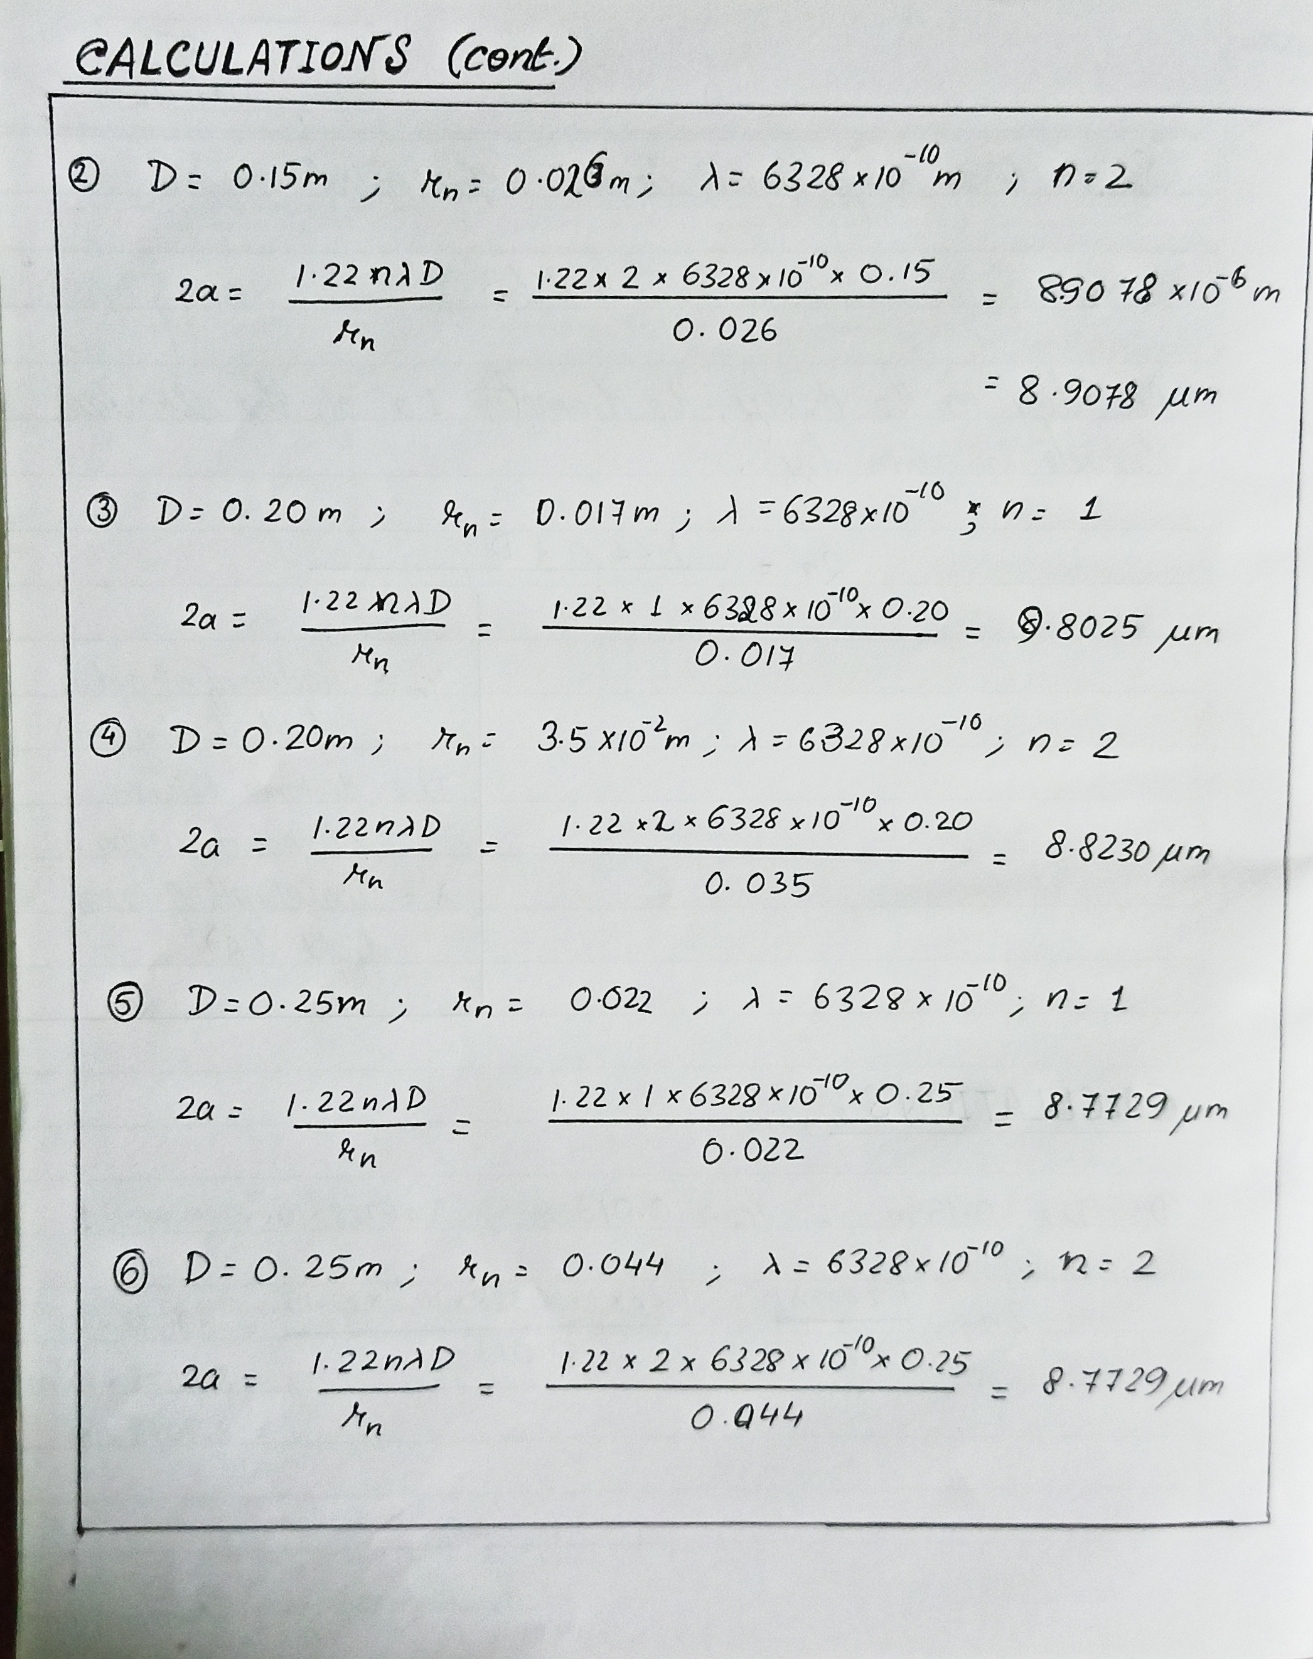 CALCULATIONS (cont.)
② D = 0.15m ; rn = 0.026m ; λ = 6328 × 10⁻¹⁰ m ; n = 2
2a = 1.22nλD / rn = 1.22 × 2 × 6328 × 10⁻¹⁰ × 0.15 / 0.026 = 89078 × 10⁻⁶ m
= 8.9078 μm
③ D = 0.20 m ; rn = 0.017m ; λ = 6328 × 10⁻¹⁰ ; n = 1
2a = 1.22nλD / rn = 1.22 × 1 × 6328 × 10⁻¹⁰ × 0.20 / 0.017 = .8025 μm
④ D = 0.20m ; rn = 3.5 × 10⁻² m ; λ = 6328 × 10⁻¹⁰ ; n = 2
2a = 1.22nλD / rn = 1.22 × 2 × 6328 × 10⁻¹⁰ × 0.20 / 0.035 = 8.8230 μm
⑤ D = 0.25m ; rn = 0.022 ; λ = 6328 × 10⁻¹⁰ ; n = 1
2a = 1.22nλD / rn = 1.22 × 1 × 6328 × 10⁻¹⁰ × 0.25 / 0.022 = 8.7729 μm
⑥ D = 0.25m ; rn = 0.044 ; λ = 6328 × 10⁻¹⁰ ; n = 2
2a = 1.22nλD / rn = 1.22 × 2 × 6328 × 10⁻¹⁰ × 0.25 / 0.044 = 8.7729 μm